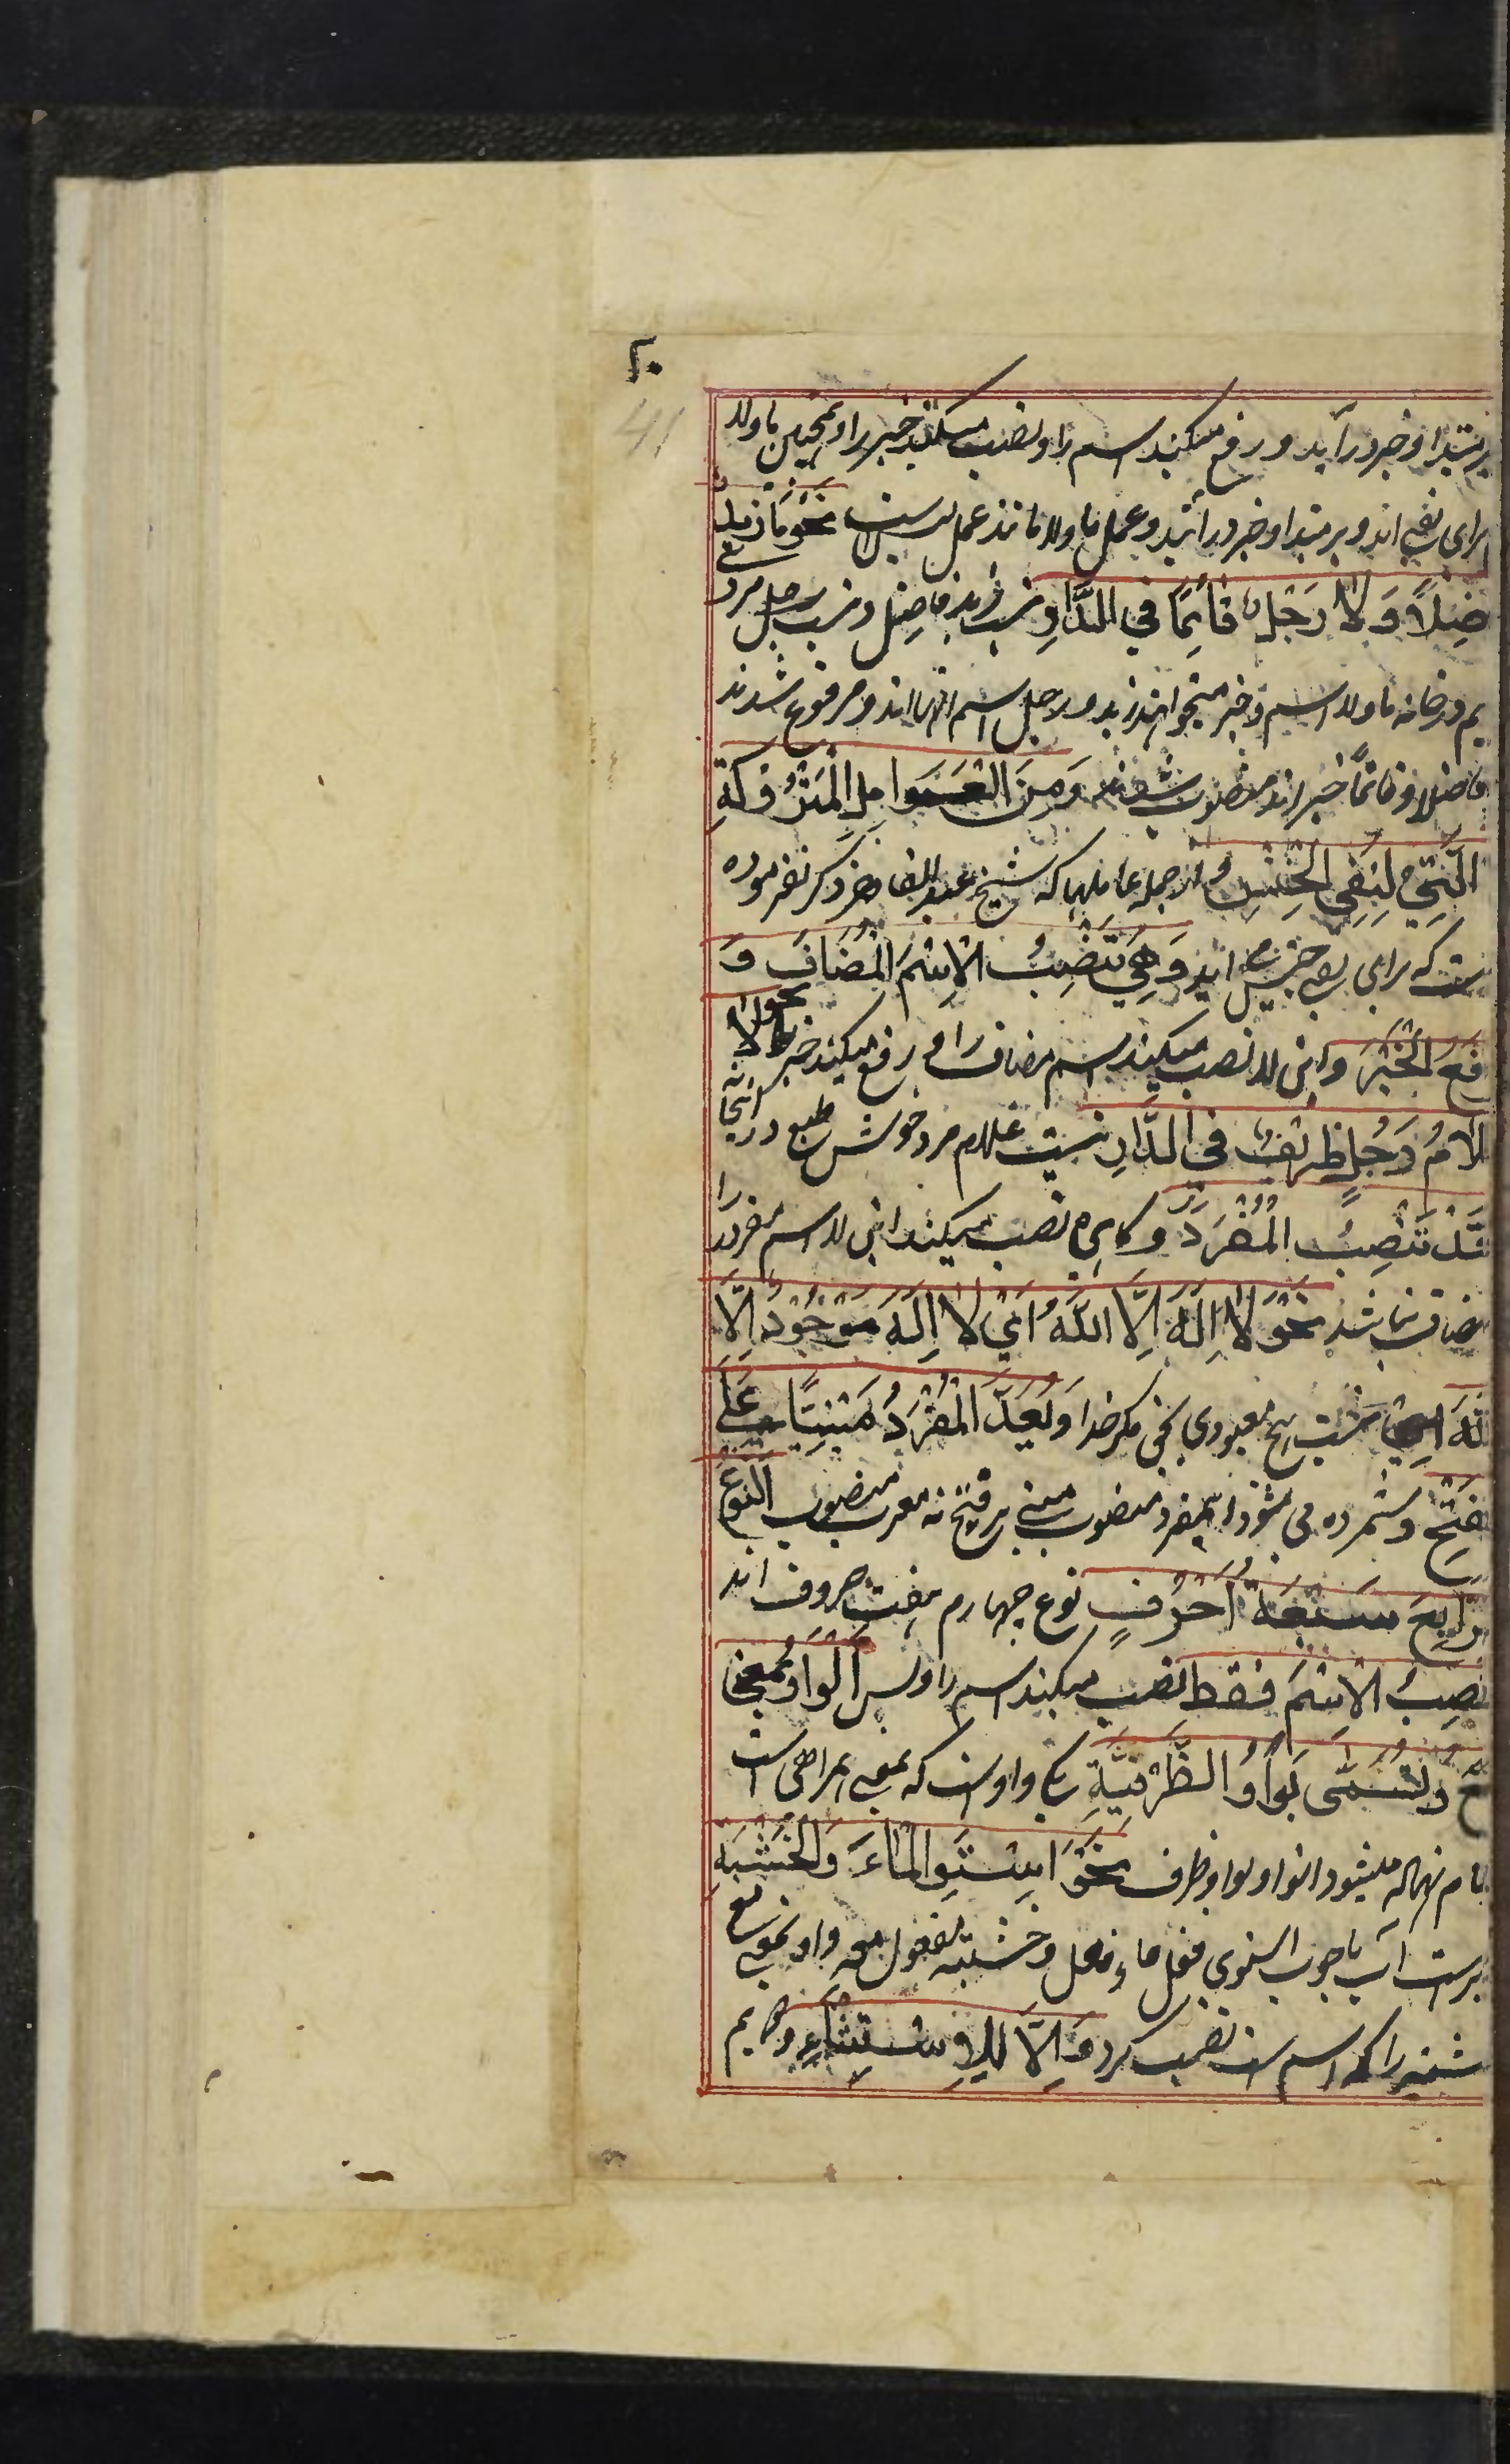 ۲۰
41
بر مبتدا و خبر در آید و رفع میکنند اسم را و نصب میکنند خبر را و همچنین ما و لا
برای نفی اند و بر مبتدا و خبر در آیند و عمل ما و لا مانند عمل لیس است نَحْوُ مَا زَیدٌ
ضِلًا وَ لَا رَجُلٌ قَائِمًا فِي الدَّارِ نیست زید فاضل و نیست رجل مرد
یم در خانه ما و لا اسم و خبر میخواهند زید و رجل اسم اینها اند و مرفوع شدند
فاضلا و قائمًا خبر اند منصوب شدند وَمِنَ الْعَوَامِلِ الْمَتْرُوكَةِ
الَّتِي لِنَفِي الْجِنْسِ و از جمله عاملها که شیخ عبد القاهر ذکر نفرموده
ست که برای نفی جنس اند وَهِيَ تَنْصِبُ الْاِسْمَ الْمُضَافَ وَ
فَعُ الْخَبَرَ و این لا نصب میکند اسم مضاف را و رفع میکند خبر را نحو لا
لَامُ رَجُلٍ ظَرِيفٌ فِي الدَّارِ نیست غلام مرد خوش طبع در آنخانه
قَدْ تَنْصِبُ الْمُفْرَدَ و گاهی نصب میکند این لا اسم مفرد را
مضاف نباشد نَحْوُ لَا اِلَهَ اِلَّا اللهُ اَيْ لَا اِلَهَ مَوْجُودٌ اِلَّا
للهَ نیست هیچ معبودی بحق مگر خدا وَ يُعَدُّ الْمُفْرَدُ مَبْنِيًّا عَلَى
لْفَتْحِ و شمرده می شود اسم مفرد منصوب مبنی بر فتح نه معرب منصوب اَلنَّوْعُ
لرَّابِعُ سَبْعَةُ اَحْرُفٍ نوع چهارم هفت حروف اند
نْصِبُ الْاِسْمَ فَقَط نصب میکند اسم را و بس اَلْوَاوُ بِمَعْنَی
عَ وَ تُسَمَّى بَوَاوُ الظَّرْفِيَّةِ یکی واو است که بمعنی همراهی است
نام نهاده میشود انواو بواو ظرف نَحْوُ اِسْتَوِی الْمَاءَ وَالْخَشَبَةِ
برابر است آب با چوب استوی فعل ماء فاعل و خشبة مفعول معه واو بمعنی مع
شبه را که اسم است نصب کرد وَ اِلَّا لِلْاِسْتِثْنَاءِ دویم